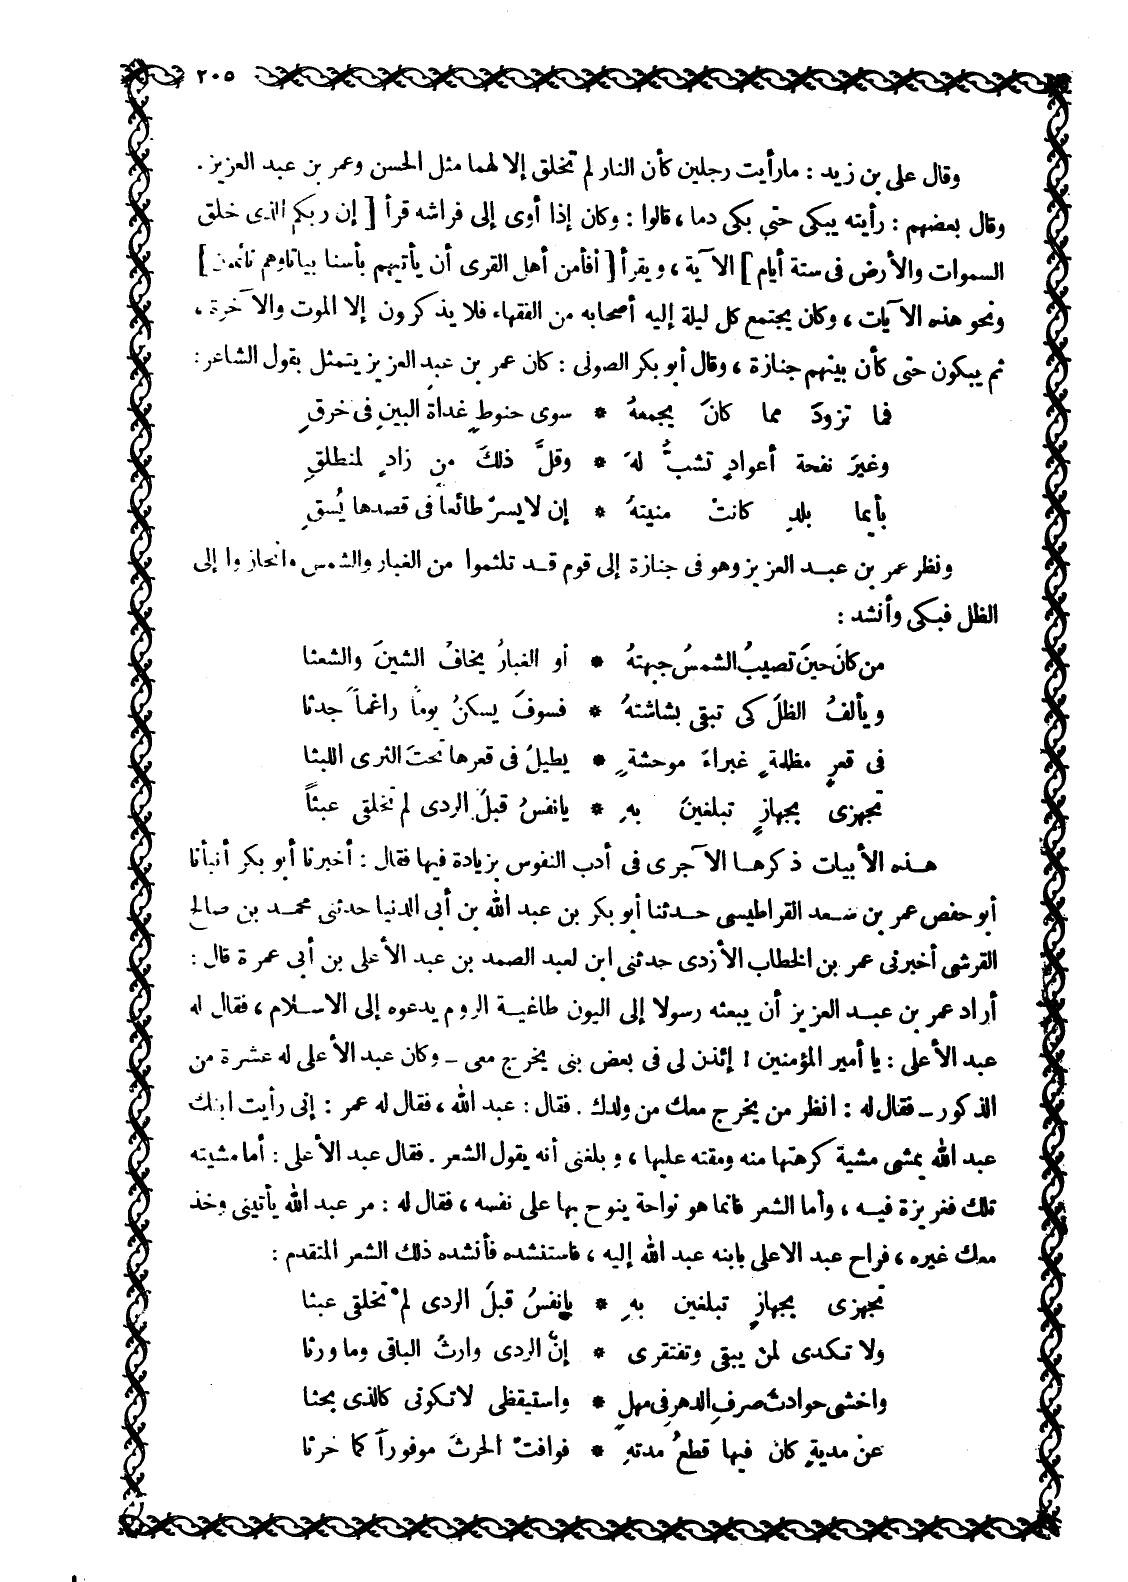 ٢٠٥
وقال على بن زيد : مارأيت رجلين كأن النار لم تخلق إلا لهما مثل الحسن وعمر بن عبد العزيز .
وقال بعضهم : رأيته يبكى حتى بكى دما ، قالوا : وكان إذا أوى إلى فراشه قرأ [ إن ربكم الذى خلق
السموات والأرض فى ستة أيام ] الآية ، ويقرأ [ أفأمن أهل القرى أن يأتيهم بأسنا بياتاوهم نائمون ]
ونحو هذه الآيات ، وكان يجتمع كل ليلة إليه أصحابه من الفقهاء فلا يذكرون إلا الموت والآخرة ،
ثم يبكون حتى كأن بينهم جنازة ، وقال أبو بكر الصولى : كان عمر بن عبد العزيز يتمثل بقول الشاعر :
فما تزودَ مما كانَ يجمعهُ * سوى حنوطٍ غداةَ البينِ فى خرقِ
وغيرَ نفحة أعوادٍ تشبُّ لهَ * وقلَّ ذلكَ من زادٍ لمنطلقِ
بأيما بلدِ كانتْ منيتهُ * إن لا يسرْ طائعاً فى قصدها يُسقِ
ونظر عمر بن عبد العزيز وهو فى جنازة إلى قوم قد تلثموا من الغبار والشمس وانحازوا إلى
الظل فبكى وأنشد :
من كانَ حينَ تصيبُ الشمسُ جبهتهُ * أو الغبارُ يخافُ الشينَ والشعثا
ويألفُ الظلَ كى تبقى بشاشتهُ * فسوفَ يسكنُ يوماً راغماً جدثا
فى قعرِ مظلمةٍ غبراءَ موحشةٍ * يطيلُ فى قعرها تحتَ الثرى اللبثا
تجهزى بجهازٍ تبلغينَ بهِ * يانفسُ قبلَ الردى لم تخلقى عبثاً
هذه الأبيات ذكرها الآجرى فى أدب النفوس بزيادة فيها فقال : أخبرنا أبو بكر أنبأنا
أبو حفص عمر بن سعد القراطيسى حدثنا أبو بكر بن عبد الله بن أبى الدنيا حدثنى محمد بن صالح
القرشى أخبرنى عمر بن الخطاب الأزدى حدثنى ابن لعبد الصمد بن عبد الأعلى بن أبى عمرة قال :
أراد عمر بن عبد العزيز أن يبعثه رسولا إلى اليون طاغية الروم يدعوه إلى الاسلام ، فقال له
عبد الأعلى : يا أمير المؤمنين ! إئذن لى فى بعض بنى يخرج معى ــ وكان عبد الأعلى له عشرة من
الذكور ــ فقال له : انظر من يخرج معك من ولدك . فقال : عبد الله ، فقال له عمر : إنى رأيت ابنك
عبد الله يمشى مشية كرهتها منه ومقته عليها ، وبلغنى أنه يقول الشعر . فقال عبد الأعلى : أما مشيته
تلك فغريزة فيه ، وأما الشعر فانما هو نواحة ينوح بها على نفسه ، فقال له : مر عبد الله يأتينى وخذ
معك غيره ، فراح عبد الاعلى بابنه عبد الله إليه ، فاستنشده فأنشده ذلك الشعر المتقدم :
تجهزى بجهازٍ تبلغين بهِ * يانفسُ قبلَ الردى لمْ تخلقى عبثا
ولا تكدى لمنْ يبقى وتفتقرى * إنَّ الردى وارثُ الباقى وما ورثا
واخشى حوادثَ صرفِ الدهرِ فى مهلٍ * واستيقظى لاتكونى كالذى بحثا
عنْ مديةٍ كان فيها قطعُ مدتهِ * فوافتْ الحرثَ موفوراً كما حرثا